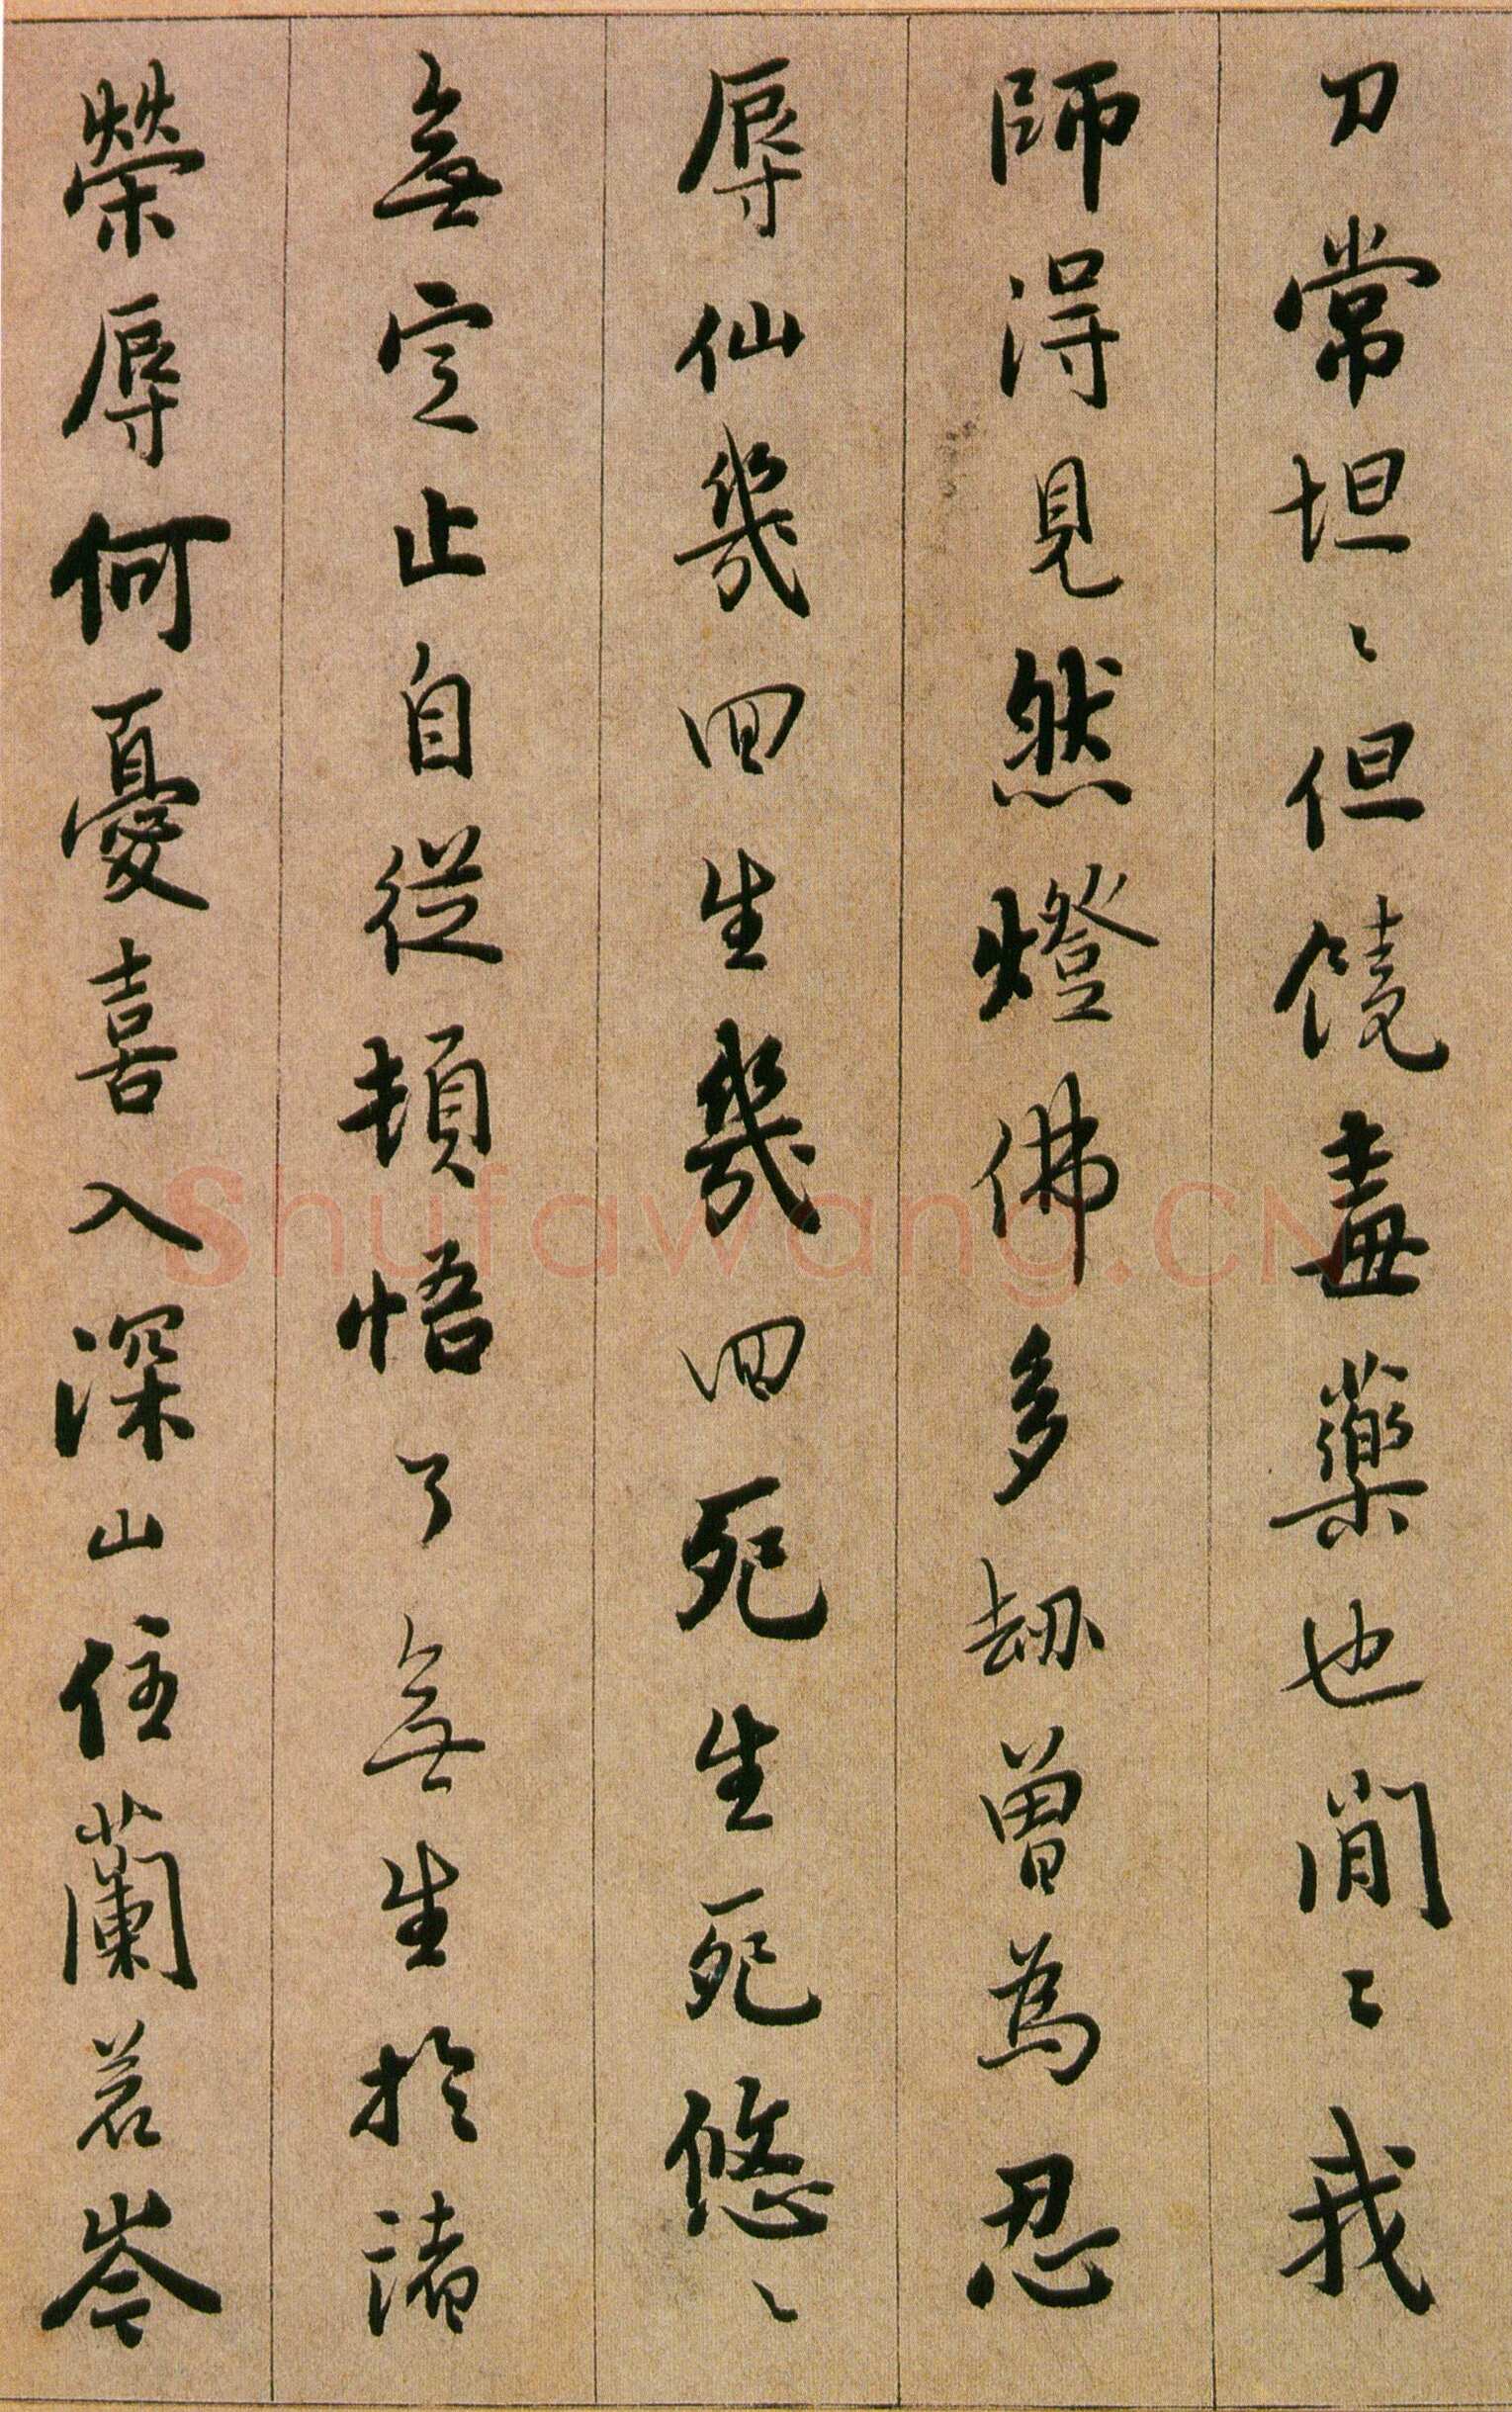 刀常坦〻但饒蠱藥也閒〻我
師得見然燈佛多劫曾為忍
辱仙幾回生幾回死生死悠〻
無定止自從頓悟了無生於諸
榮辱何憂喜入深山住蘭若岑
shufawang.CN